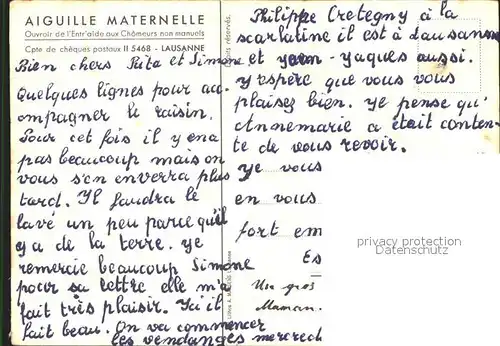 AIGUILLE MATERNELLE
Ouvroir de l'Entr'aide aux Chômeurs non manuels
Cpte de chèques postaux II 5468 - LAUSANNE
Bien chers Rita et Simone et yean-yaques aussi.
Quelques lignes pour ac-
ompagner le raisin.
Pour cet fois il y ena
pas beaucoup mais on
vous s'en enverra plus
tard. Il faudra le
lavé un peu parce qu'il
y a de la terre. ye
remercie beaucoup Simone
pour sa lettre elle m'a
fait très plaisir. Ya'il
fait beau. On va commencer
les vendanges mercred
Droits réservés.
Philippe Cretegny à la
scarlatine il est à Lausanne
y'espère que vous vous
plaisez bien. ye pense qu'
Annemarie a était conten-
te de vous revoir.
ye vous
en vous
fort em
Es
Un gros
Maman.
privacy protection overlay